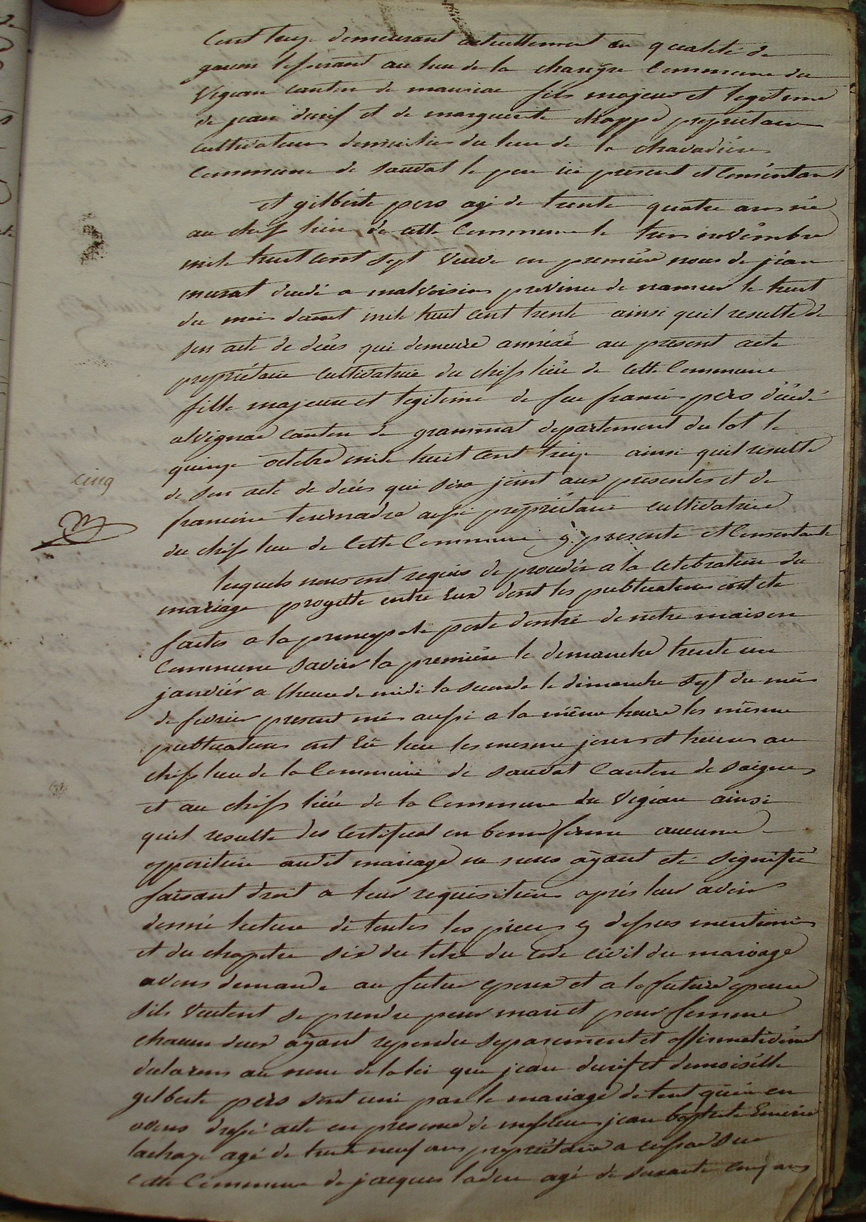 Cent treize demeurant actuellement en qualité de
garcon au lieu de la Commune du
Vigean canton de mauriac fils majeur et legitime
de jean durif et de marguerite chappe proprietaires
cultivateurs domiciliés du lieu de la chavadière
Commune de sauvat le pere ici présent et Consentant
et gilberte pers agé de trente quatre ans née
au chef lieu de cette Commune le trois novembre
mile huit cent sept Veuve en première noces de jean
murat décédé a malvoisin province de namur le huit
du mois daout mile huit cent trente ainsi quil resulte de
son acte de décès qui demeure annéxé au present acte
propriétaire cultivatrice du chef lieu de cette Commune
fille majeure et legitime de feu francois pers décédé
a Vignac canton de grammat departement du lot le
quinze octobre mile huit cent treize ainsi quil resulte
de son acte de décès qui sera joint aux présentes et de
francoise tournadre aussi propriétaire cultivatrice
du chef lieu de Cette Commune y présente et Consentante
cinq
lesquels nous ont requis de proceder a la celebration du
mariage projetté entre Eux dont les publications ont été
faites a la principale porte dentré de notre maison
Commune savoir la première le dimanche trente un
janviér a lheure de midi la seconde le dimanche sept du mois
de fevrier present mois aussi a la même heure les mesme
publications ont Eu lieu les mesme jours et heures au
chef lieu de la Commune de sauvat Canton de saignes
et au chef liéu de la Commune du Vigean ainsi
quil resulte des Certificat en bonne forme aucune
opposition audit mariage ne nous ayant été signifiée
faisant droit a leur requisition après leur avoir
donné lecture de toutes les pieces y dessus mentionés
et du chapitre six du titre du Code Civil du mariage
avons demandé au futur epoux et a la future epouse
sils veulent se prendre pour mari et pour femme
chacun deux ayant repondu separement et affirmativement
declarons au nom de la loi que jean durif et demoiselle
gilberte pers sont unis par le mariage de tout quoi en
avons dressé acte en presence de messieurs jean baptiste
lachaze agé de trente neuf ans propriétaire a
cette Commune de jacques agé de soixante cinq ans